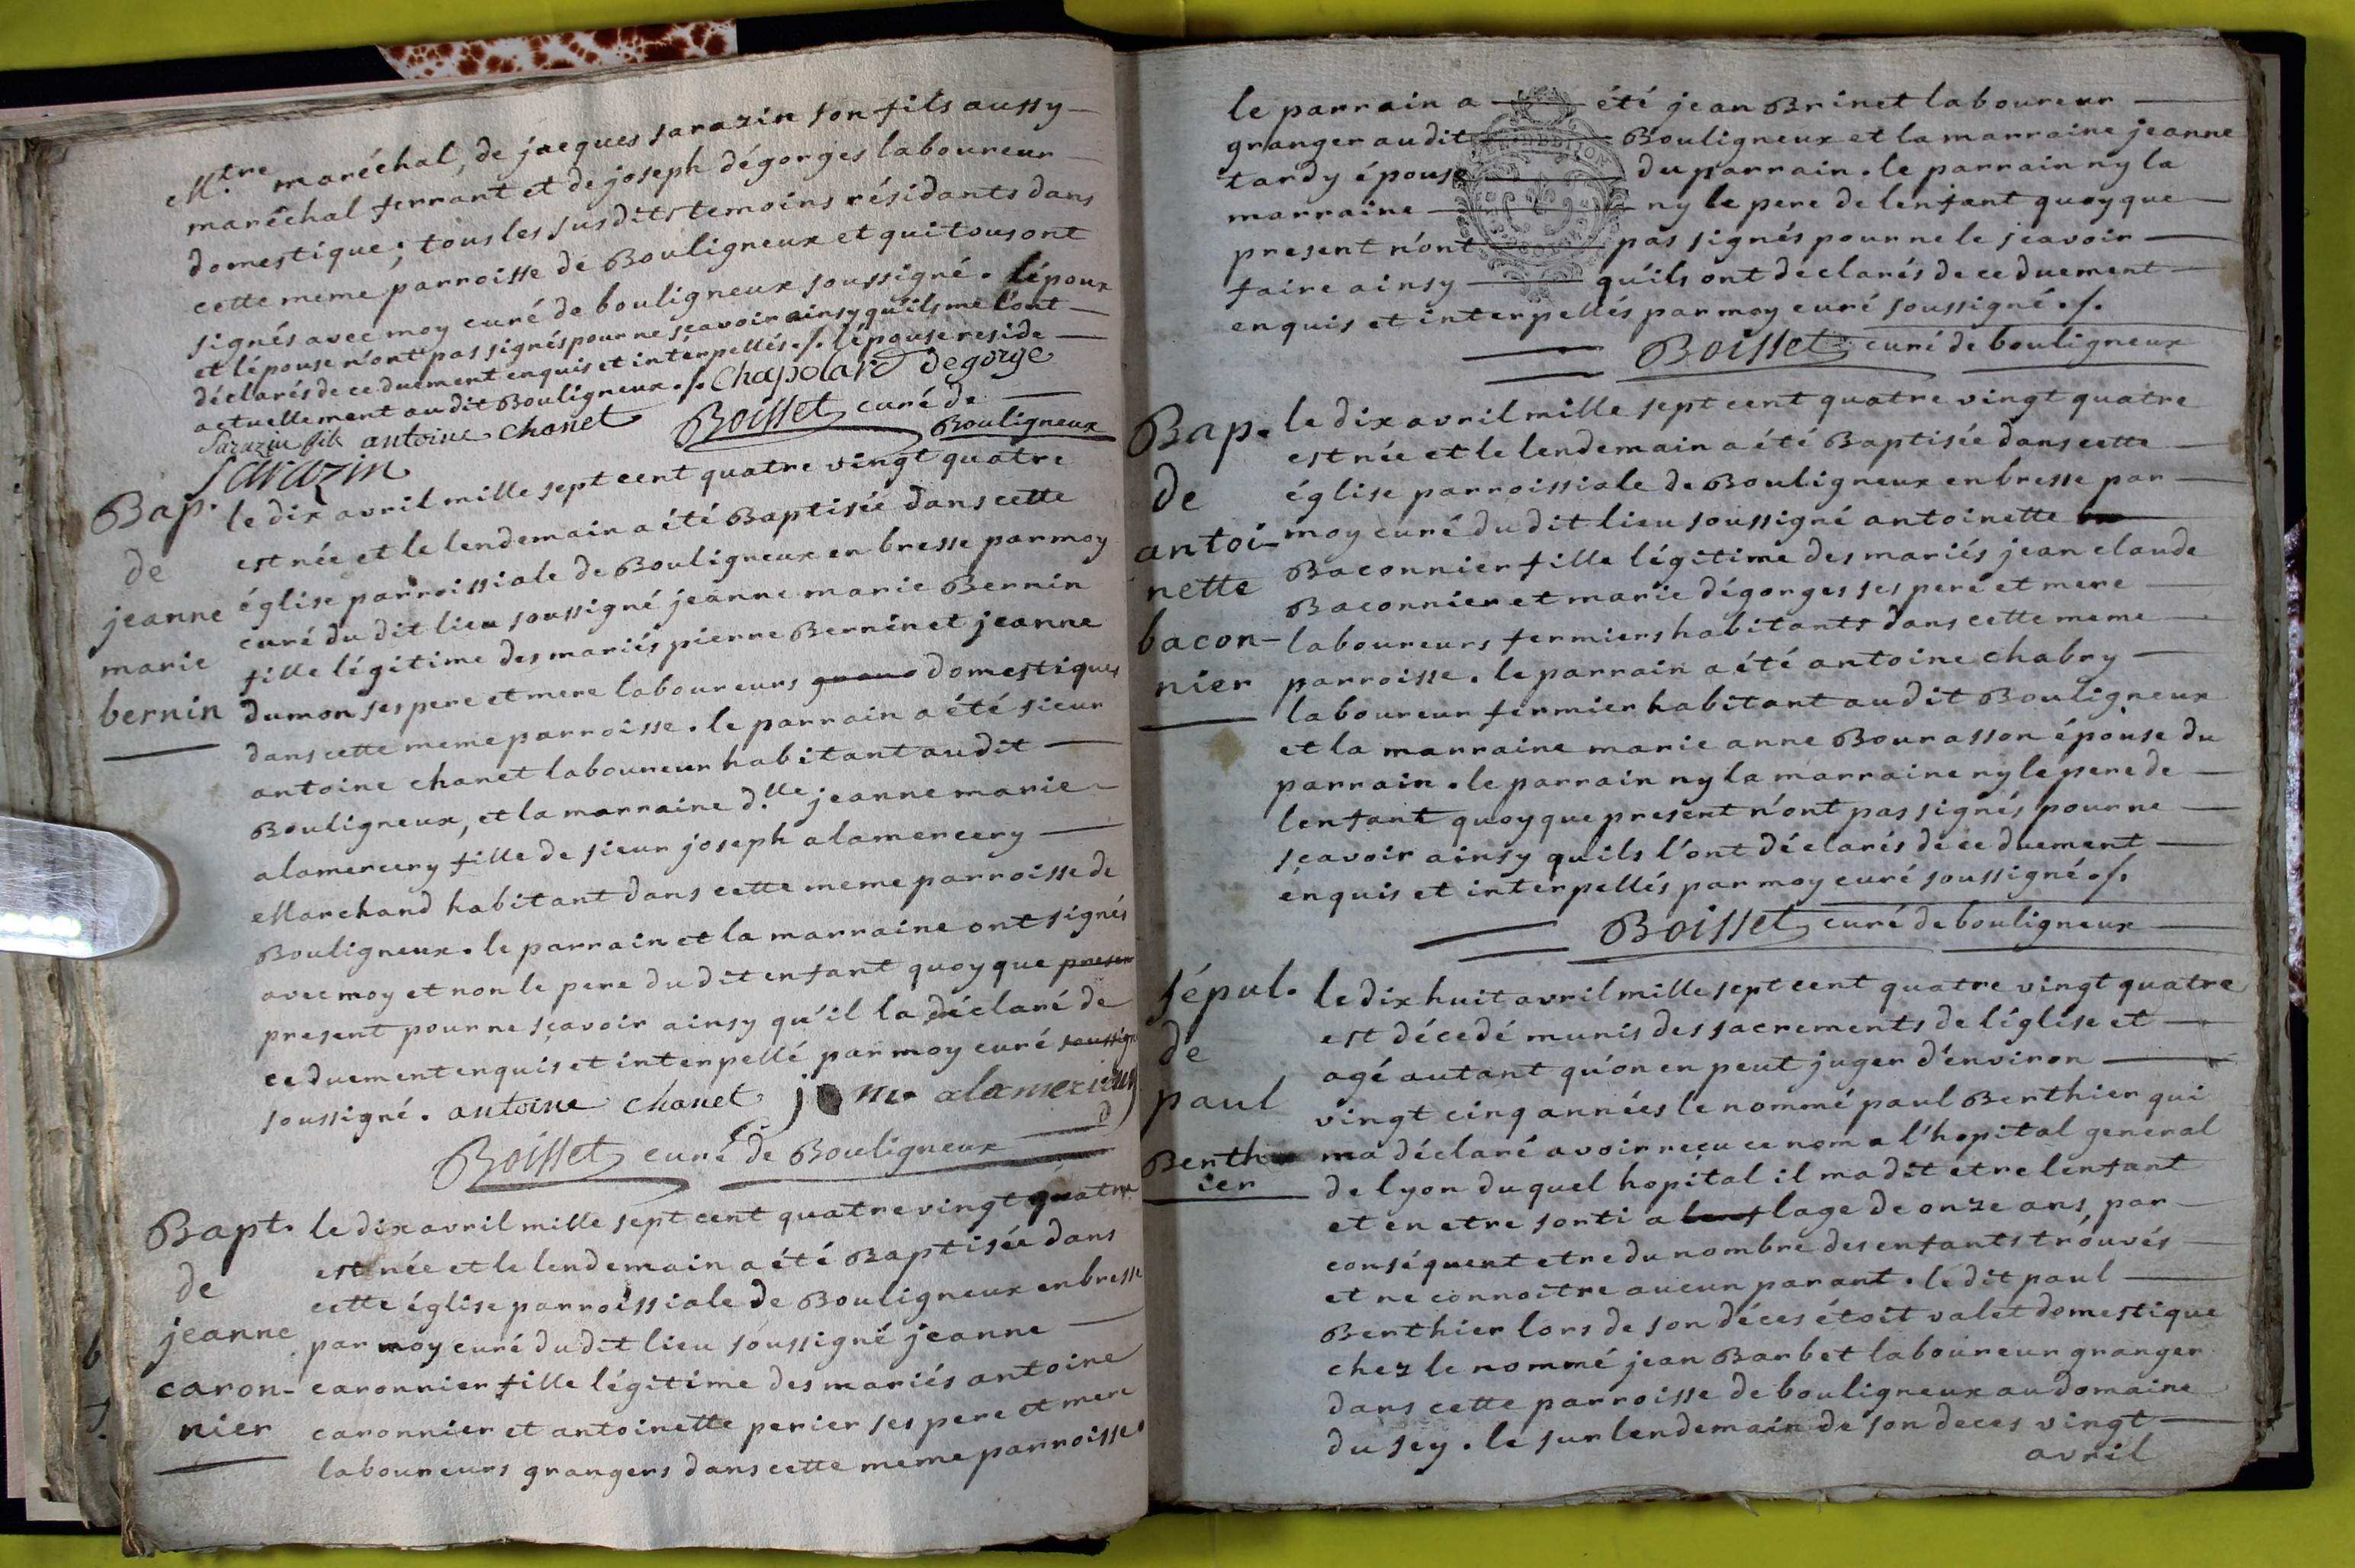 M.tre maréchal, de jacques sarazin son fils aussy
maréchal ferrant et de joseph dégorges laboureur
domestique; tous les susdits temoins résidants dans
cette meme parroisse de Bouligneux et qui tous ont
signés avec moy curé de bouligneux soussigné. lépoux
et lépouse n'ont pas signés pour ne sçavoir ainsy qu'ils me l'ont
déclarés de ce duement enquis et interpellés ./. lépouse reside
actuellement au dit Bouligneux ./. Chapolard Degorge
Sarazin fils antoine chanet Boisset curé de
Bouligneux
Sarazin
Bap. de jeanne marie bernin
le dix avril mille sept cent quatre vingt quatre
est née et le lendemain a été Baptisée dans cette
église parroissiale de Bouligneux en bresse par moy
curé du dit lieu soussigné jeanne marie Bernin
fille légitime des mariés pierre Bernin et jeanne
dumon ses pere et mere laboureurs domestiques
dans cette meme parroisse. le parrain a été sieur
antoine chanet laboureur habitant au dit
Bouligneux, et la marraine d.lle jeanne marie
alamercery fille de sieur joseph alamercery
Marchand habitant dans cette meme parroisse de
Bouligneux. le parrain et la marraine ont signés
avec moy et non le pere du dit enfant quoyque presen
present pour ne sçavoir ainsy qu'il la déclaré de
ce duement enquis et interpellé par moy curé soussigné
soussigné. antoine chanet
Boisset curé de Bouligneux
Bapt. de jeanne caron-nier
le dix avril mille sept cent quatre vingt quatre
est née et le lendemain a été Baptisée dans
cette église parroissiale de Bouligneux en bresse
par moy curé du dit lieu soussigné jeanne
caronnier fille légitime des mariés antoine
caronnier et antoinette perier ses pere et mere
laboureurs grangers dans cette meme parroisse.
le parrain a été jean Brinet laboureur
granger au dit Bouligneux et la marraine jeanne
tardy épouse du parrain. le parrain ny la
marraine ny le pere de lenfant quoyque
present n'ont pas signés pour ne le scavoir
faire ainsy qu'ils ont declarés de ce duement
enquis et interpellés par moy curé soussigné ./.
Boisset curé de bouligneux
Bap. de antoi-nette bacon-nier
le dix avril mille sept cent quatre vingt quatre
est née et le lendemain a été Baptisée dans cette
église parroissiale de Bouligneux en bresse par
moy curé du dit lieu soussigné antoinette
Baconnier fille légitime des mariés jean claude
Baconnier et marie dégorges ses pere et mere
laboureurs fermiers habitants dans cette meme
parroisse. le parrain a été antoine chabry
laboureur fermier habitant au dit Bouligneux
et la marraine marie anne Bourasson épouse du
parrain. le parrain ny la marraine ny le pere de
lenfant quoyque present n'ont pas signés pour ne
sçavoir ainsy quils l'ont déclarés de ce duement
enquis et interpellés par moy curé soussigné ./.
Boisset curé de bouligneux
sépul. de paul Berth ier
le dix huit avril mille sept cent quatre vingt quatre
est décedé munis des sacrements de léglise et
agé autant qu'on en peut juger d'environ
vingt cinq années le nommé paul Berthier qui
ma déclaré avoir reçu ce nom a l'hopital general
de lyon du quel hopital il ma dit etre lenfant
et en etre sorti a lage de onze ans, par
conséquent etre du nombre des enfants trouvés
et ne connoitre aucun parant. le dit paul
Berthier lors de son déces étoit valet domestique
chez le nommé jean Barbet laboureur granger
dans cette parroisse de bouligneux au domaine
du sey. le surlendemain de son deces vingt
avril